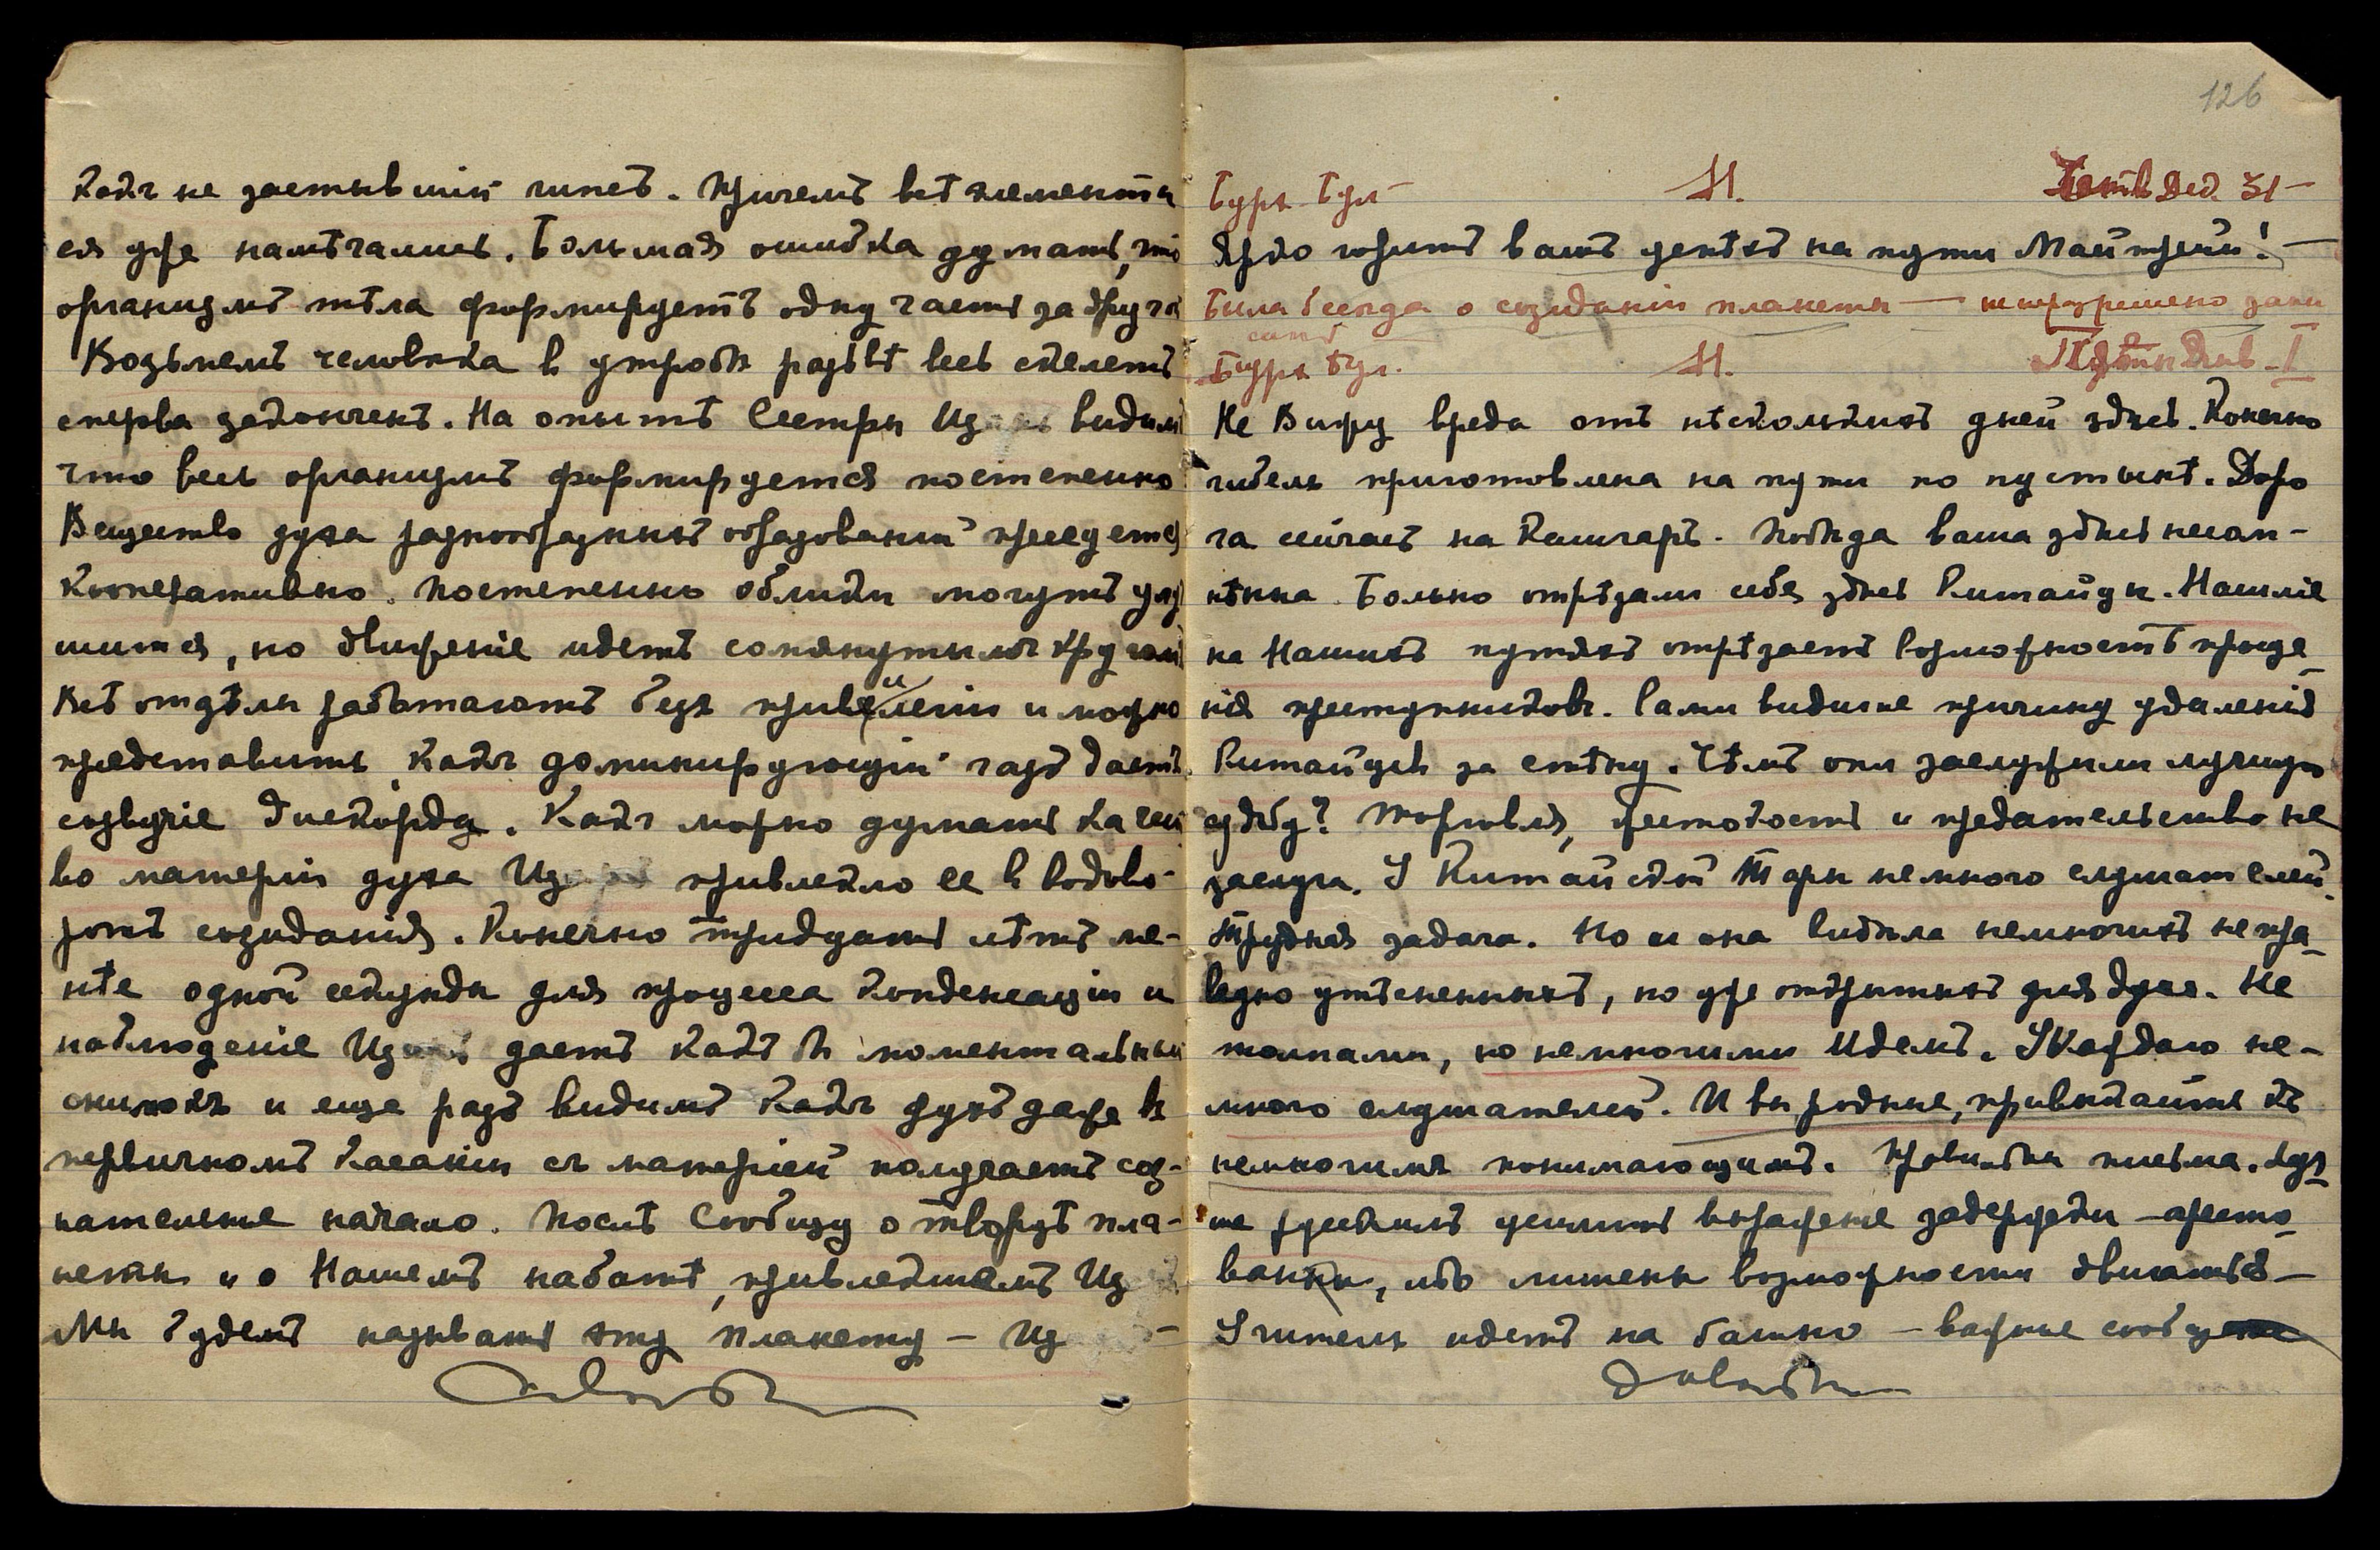 какъ не застывшій гипсъ. Причемъ всѣ элементы
ея уже намѣчались. Большая ошибка думать, что
организмъ тѣла формируетъ одну часть за другой
Возьмемъ человѣка в утробѣ развѣ весь скелетъ
сперва законченъ. На опытѣ Сестры Из видимъ
что весь организмъ формируется постепенно
Вещество духа разнообразныхъ образованій
Кооперативно. Постепенно облики могутъ
, но движеніе идетъ сомкнутымъ кругомъ
Всѣ отдѣлы работаютъ безъ и можно
представить, какъ доминирующій газъ даетъ
созвучіе Дискорда. Какъ можно думать качест
во матеріи духа Из привлекло ее в водово-
ротъ созиданія. Конечно тридцать лѣтъ ме-
нѣе одной секунды для процесса конденсаціи и
наблюденіе Из даетъ какъ бы моментальный
снимокъ и еще разъ видимъ какъ духъ даже въ
первичномъ касаніи съ матеріей получаетъ соз-
нательное начало. Послѣ Сообщу о творцѣ пла-
неты и о Нашемъ набатѣ, привлекшемъ Из
Мы будемъ называть эту планету — Из —
довольно
126
Бурх. Бул— М. Четв Дек. 31—
Ярко горитъ вашъ центръ на пути Майтрейи! —
Была бесѣда о созиданіи планеты —
Бурх Бул. М. I
Не Вижу вреда отъ нѣсколькихъ дней здѣсь. Конечно
гибель приготовлена на пути по пустынѣ. Доро
га сейчасъ на Кашгаръ. Побѣда ваша здѣсь несом-
нѣнна. Больно отрѣзали себя здѣсь Китайцы. Насиліе
на Нашихъ путяхъ отрѣзаетъ возможность проще
нія преступниковъ. Сами видите причину удаленія
Китайцевъ за стѣну. Чѣмъ они заслужили лучшую
судьбу? Торговля, жестокость и предательство не
заслуга. У Китайской Тары немного слушателей.
Трудная задача. Но и она видѣла немногихъ непра-
ведно утѣсненныхъ, но уже открытыхъ для духа. Не
толпами, но немногими Идемъ. У Каждаго не-
много слушателей. И вы родные, привыкайте къ
немногимъ понимающимъ. Правильны письма. Луч
ше усилить выраженіе задержки — аресто-
ваны, ибо лишены возможности двигаться —
Учитель идетъ на башню — важные
довольно